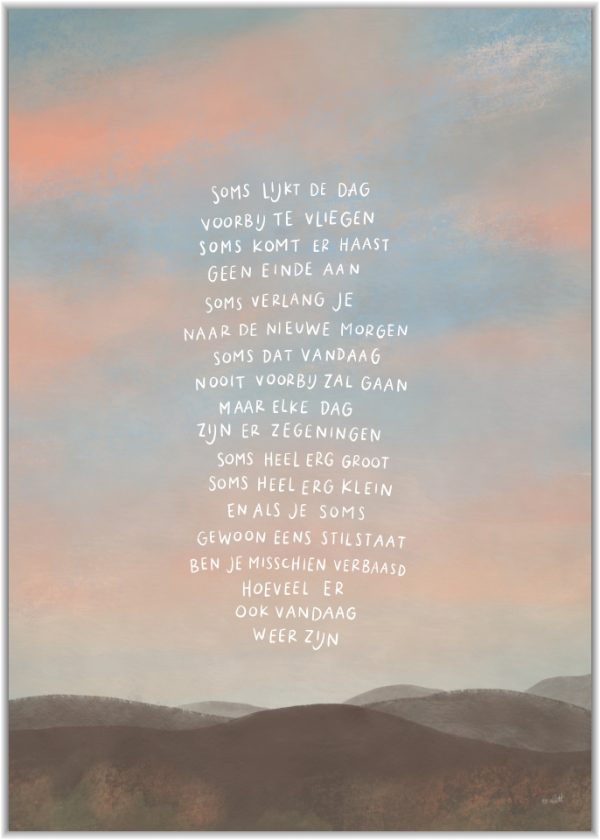 SOMS LIJKT DE DAG
VOORBIJ TE VLIEGEN
SOMS KOMT ER HAAST
GEEN EINDE AAN
SOMS VERLANG JE
NAAR DE NIEUWE MORGEN
SOMS DAT VANDAAG
NOOIT VOORBIJ ZAL GAAN
MAAR ELKE DAG
ZIJN ER ZEGENINGEN
SOMS HEEL ERG GROOT
SOMS HEEL ERG KLEIN
EN ALS JE SOMS
GEWOON EENS STILSTAAT
BEN JE MISSCHIEN VERBAASD
HOEVEEL ER
OOK VANDAAG
WEER ZIJN